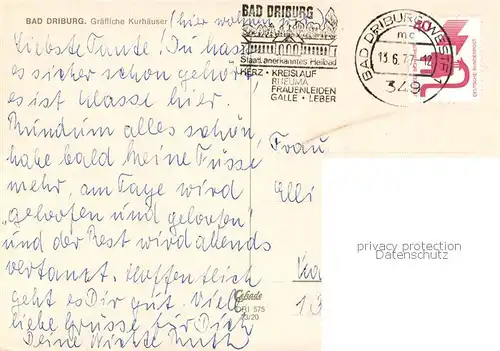 BAD DRIBURG. Gräfliche Kurhäuser (hier wohnen
Liebste Tante. Du hast
es sicher schon gehört
es ist klasse hier.
Rundum alles schön,
habe bald keine Füsse
mehr, am Tage wird
"geloofen und geloofen"
und der Rest wird abends
vertanzt. Hoffentlich
geht es Dir gut. Viele
liebe Grüsse für Dich
Deine Nichte Ruth
BAD DRIBURG
Staatl. anerkanntes Heilbad
HERZ • KREISLAUF
RHEUMA
FRAUENLEIDEN
GALLE • LEBER
BAD DRIBURG, WESTF 1
mc
13.6.77-12
349
40
DEUTSCHE BUNDESPOST
Frau
Elli
Ka
13
Cekade
DRI 575
23/20
privacy protection
Datenschutz